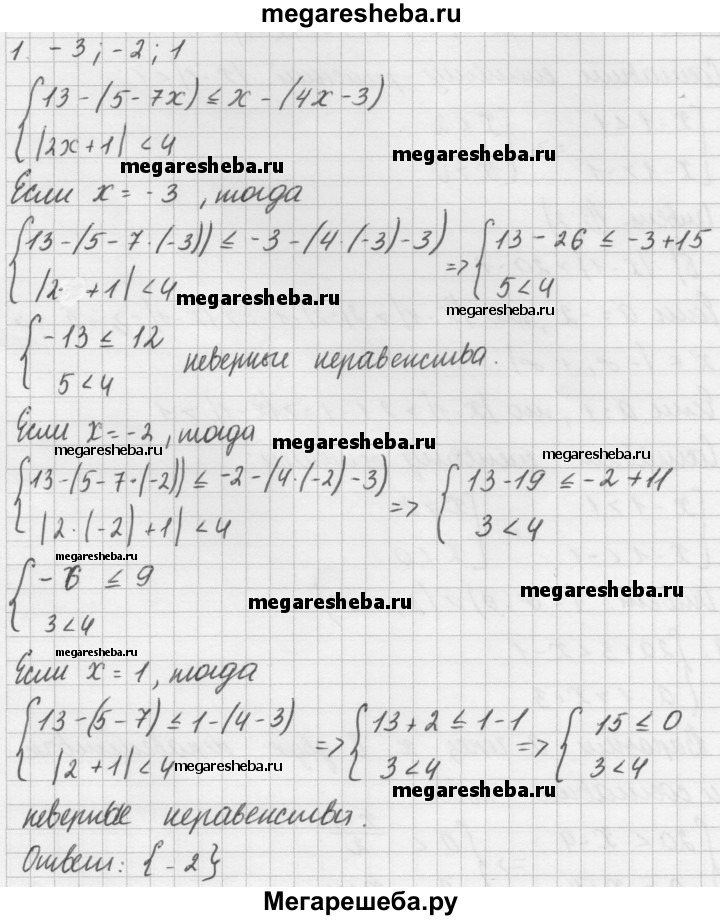 megaresheba.ru
1. -3; -2; 1
{ 13-(5-7x) ≤ x-(4x-3)
megaresheba.ru
|2x+1| < 4
megaresheba.ru
Если x = -3, тогда
{ 13-(5-7·(-3)) ≤ -3-(4·(-3)-3) => { 13-26 ≤ -3+15
|2· +1| < 4 5 < 4
megaresheba.ru
megaresheba.ru
{ -13 ≤ 12
5 < 4 неверные неравенства.
Если x = -2, тогда
megaresheba.ru
megaresheba.ru
megaresheba.ru
{ 13-(5-7·(-2)) ≤ -2-(4·(-2)-3) => { 13-19 ≤ -2+11
|2·(-2)+1| < 4 3 < 4
megaresheba.ru
{ -6 ≤ 9
megaresheba.ru
megaresheba.ru
3 < 4
megaresheba.ru
Если x = 1, тогда
{ 13-(5-7) ≤ 1-(4-3) => { 13+2 ≤ 1-1 => { 15 ≤ 0
|2 +1| < 4 3 < 4 3 < 4
megaresheba.ru
megaresheba.ru
неверные неравенства.
Ответ: {-2}
Мегарешеба.ру